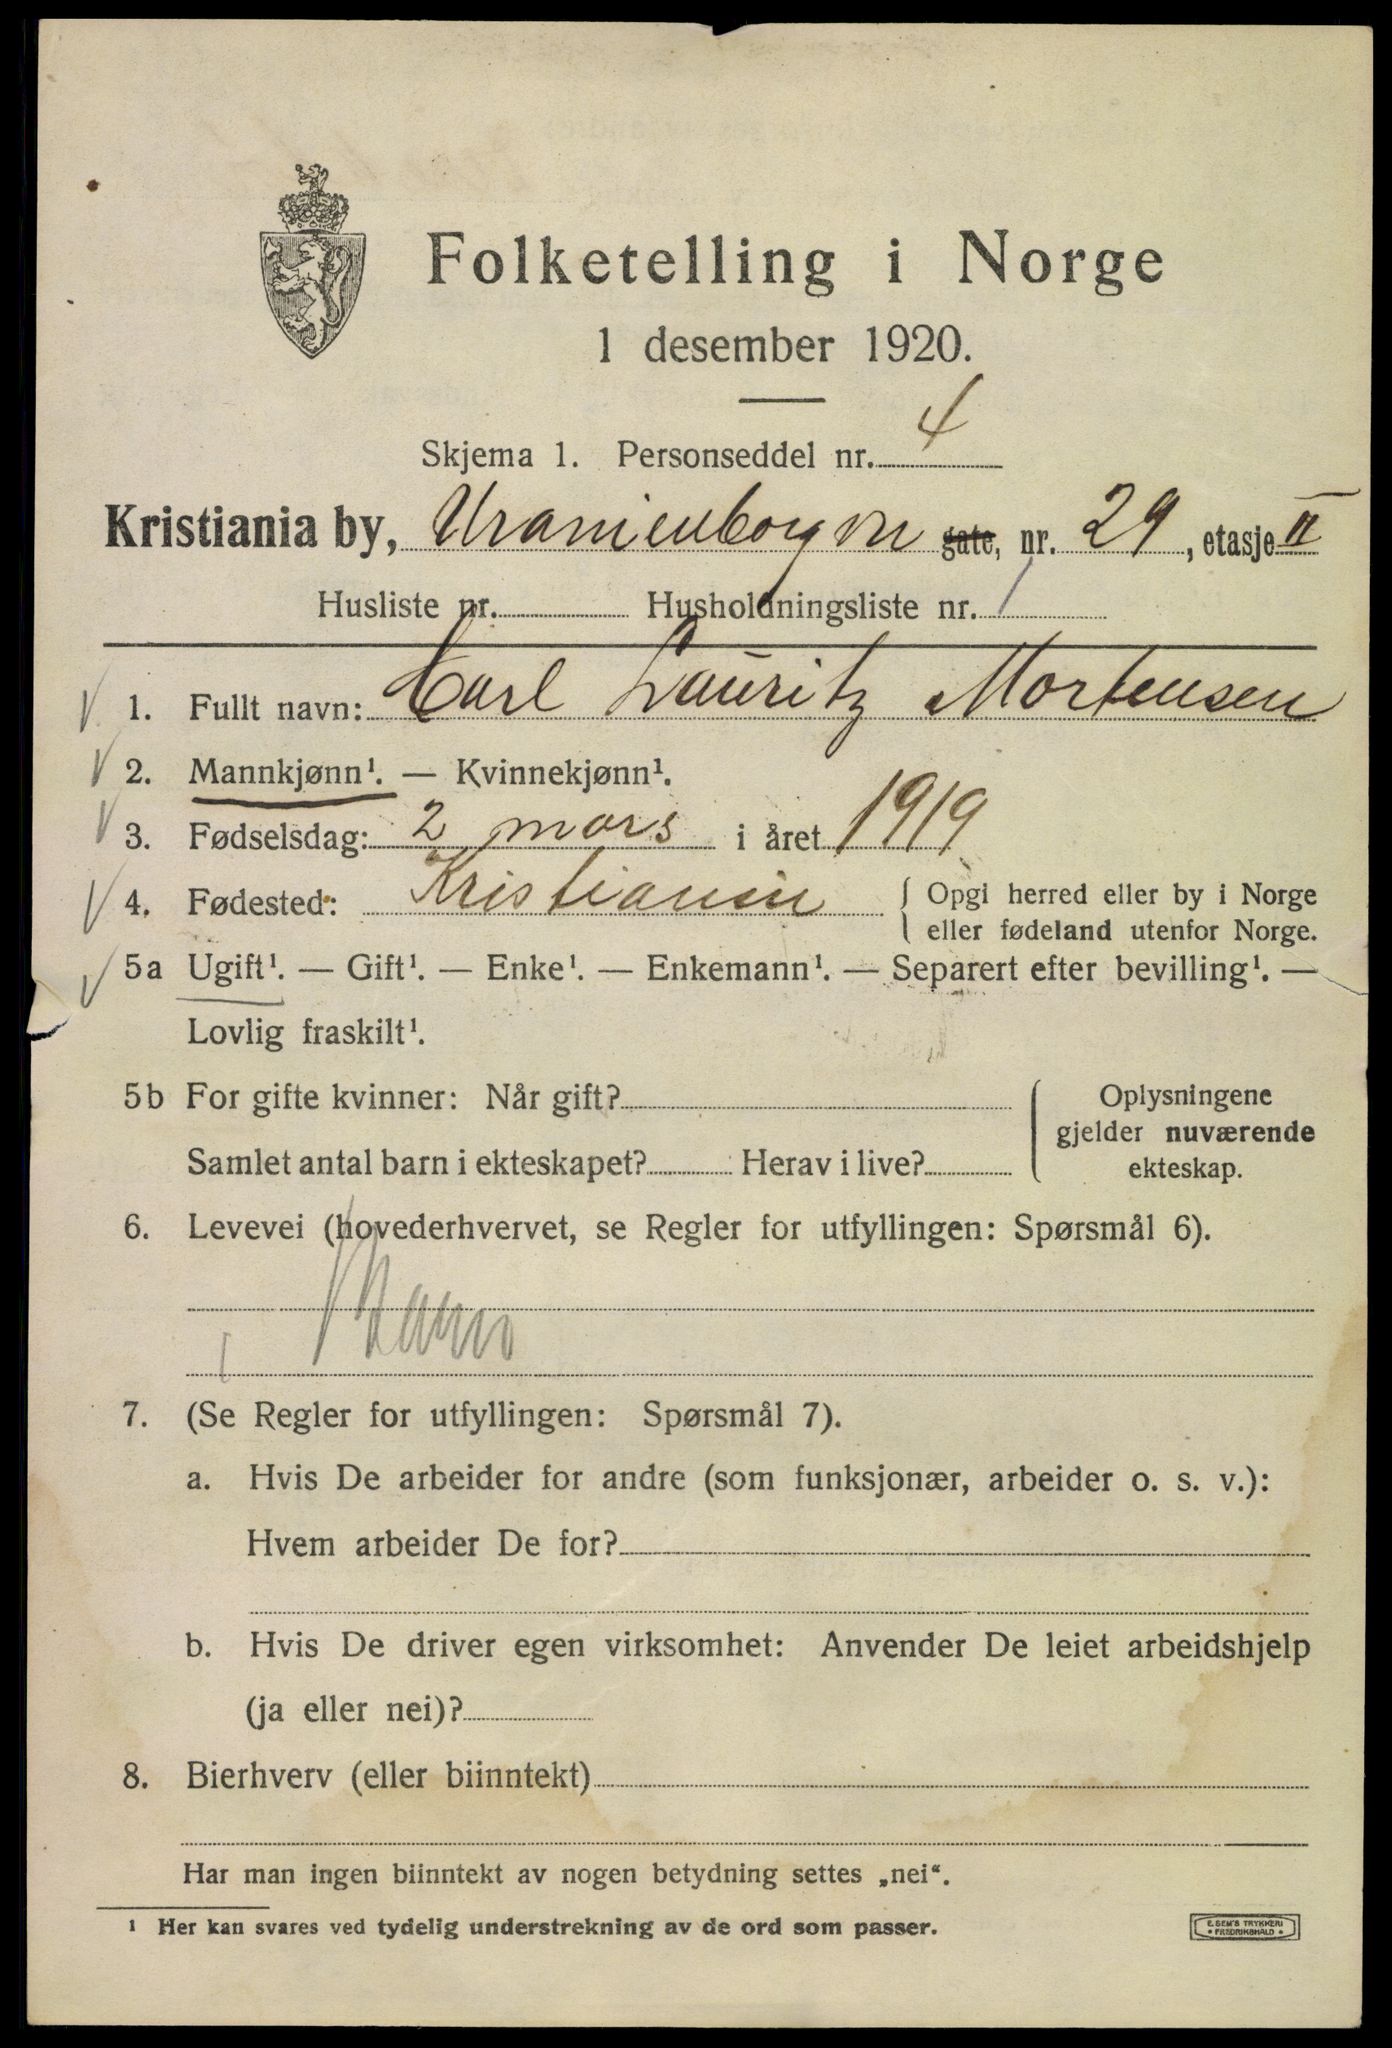 Folketelling i Norge
1 desember 1920.
Skjema 1. Personseddel nr. 4
Kristiania by, Uranienborgvn gate, nr. 29, etasje II
Husliste nr. Husholdningsliste nr. 1
1. Fullt navn: Carl Lauritz Mortensen
2. Mannkjønn¹. — Kvinnekjønn¹.
3. Fødselsdag: 2 mars i året 1919
4. Fødested: Kristiania { Opgi herred eller by i Norge
eller fødeland utenfor Norge.
5a Ugift¹. — Gift¹. — Enke¹. — Enkemann¹. — Separert efter bevilling¹. —
Lovlig fraskilt¹.
5b For gifte kvinner: Når gift? { Oplysningene
gjelder nuværende
Samlet antal barn i ekteskapet? Herav i live? ekteskap.
6. Levevei (hovederhvervet, se Regler for utfyllingen: Spørsmål 6).
Barn
7. (Se Regler for utfyllingen: Spørsmål 7).
a. Hvis De arbeider for andre (som funksjonær, arbeider o. s. v.):
Hvem arbeider De for?
b. Hvis De driver egen virksomhet: Anvender De leiet arbeidshjelp
(ja eller nei)?
8. Bierhverv (eller biinntekt)
Har man ingen biinntekt av nogen betydning settes „nei“.
¹ Her kan svares ved tydelig understrekning av de ord som passer.
E. SEM'S TRYKKERI
• FREDRIKSHALD •